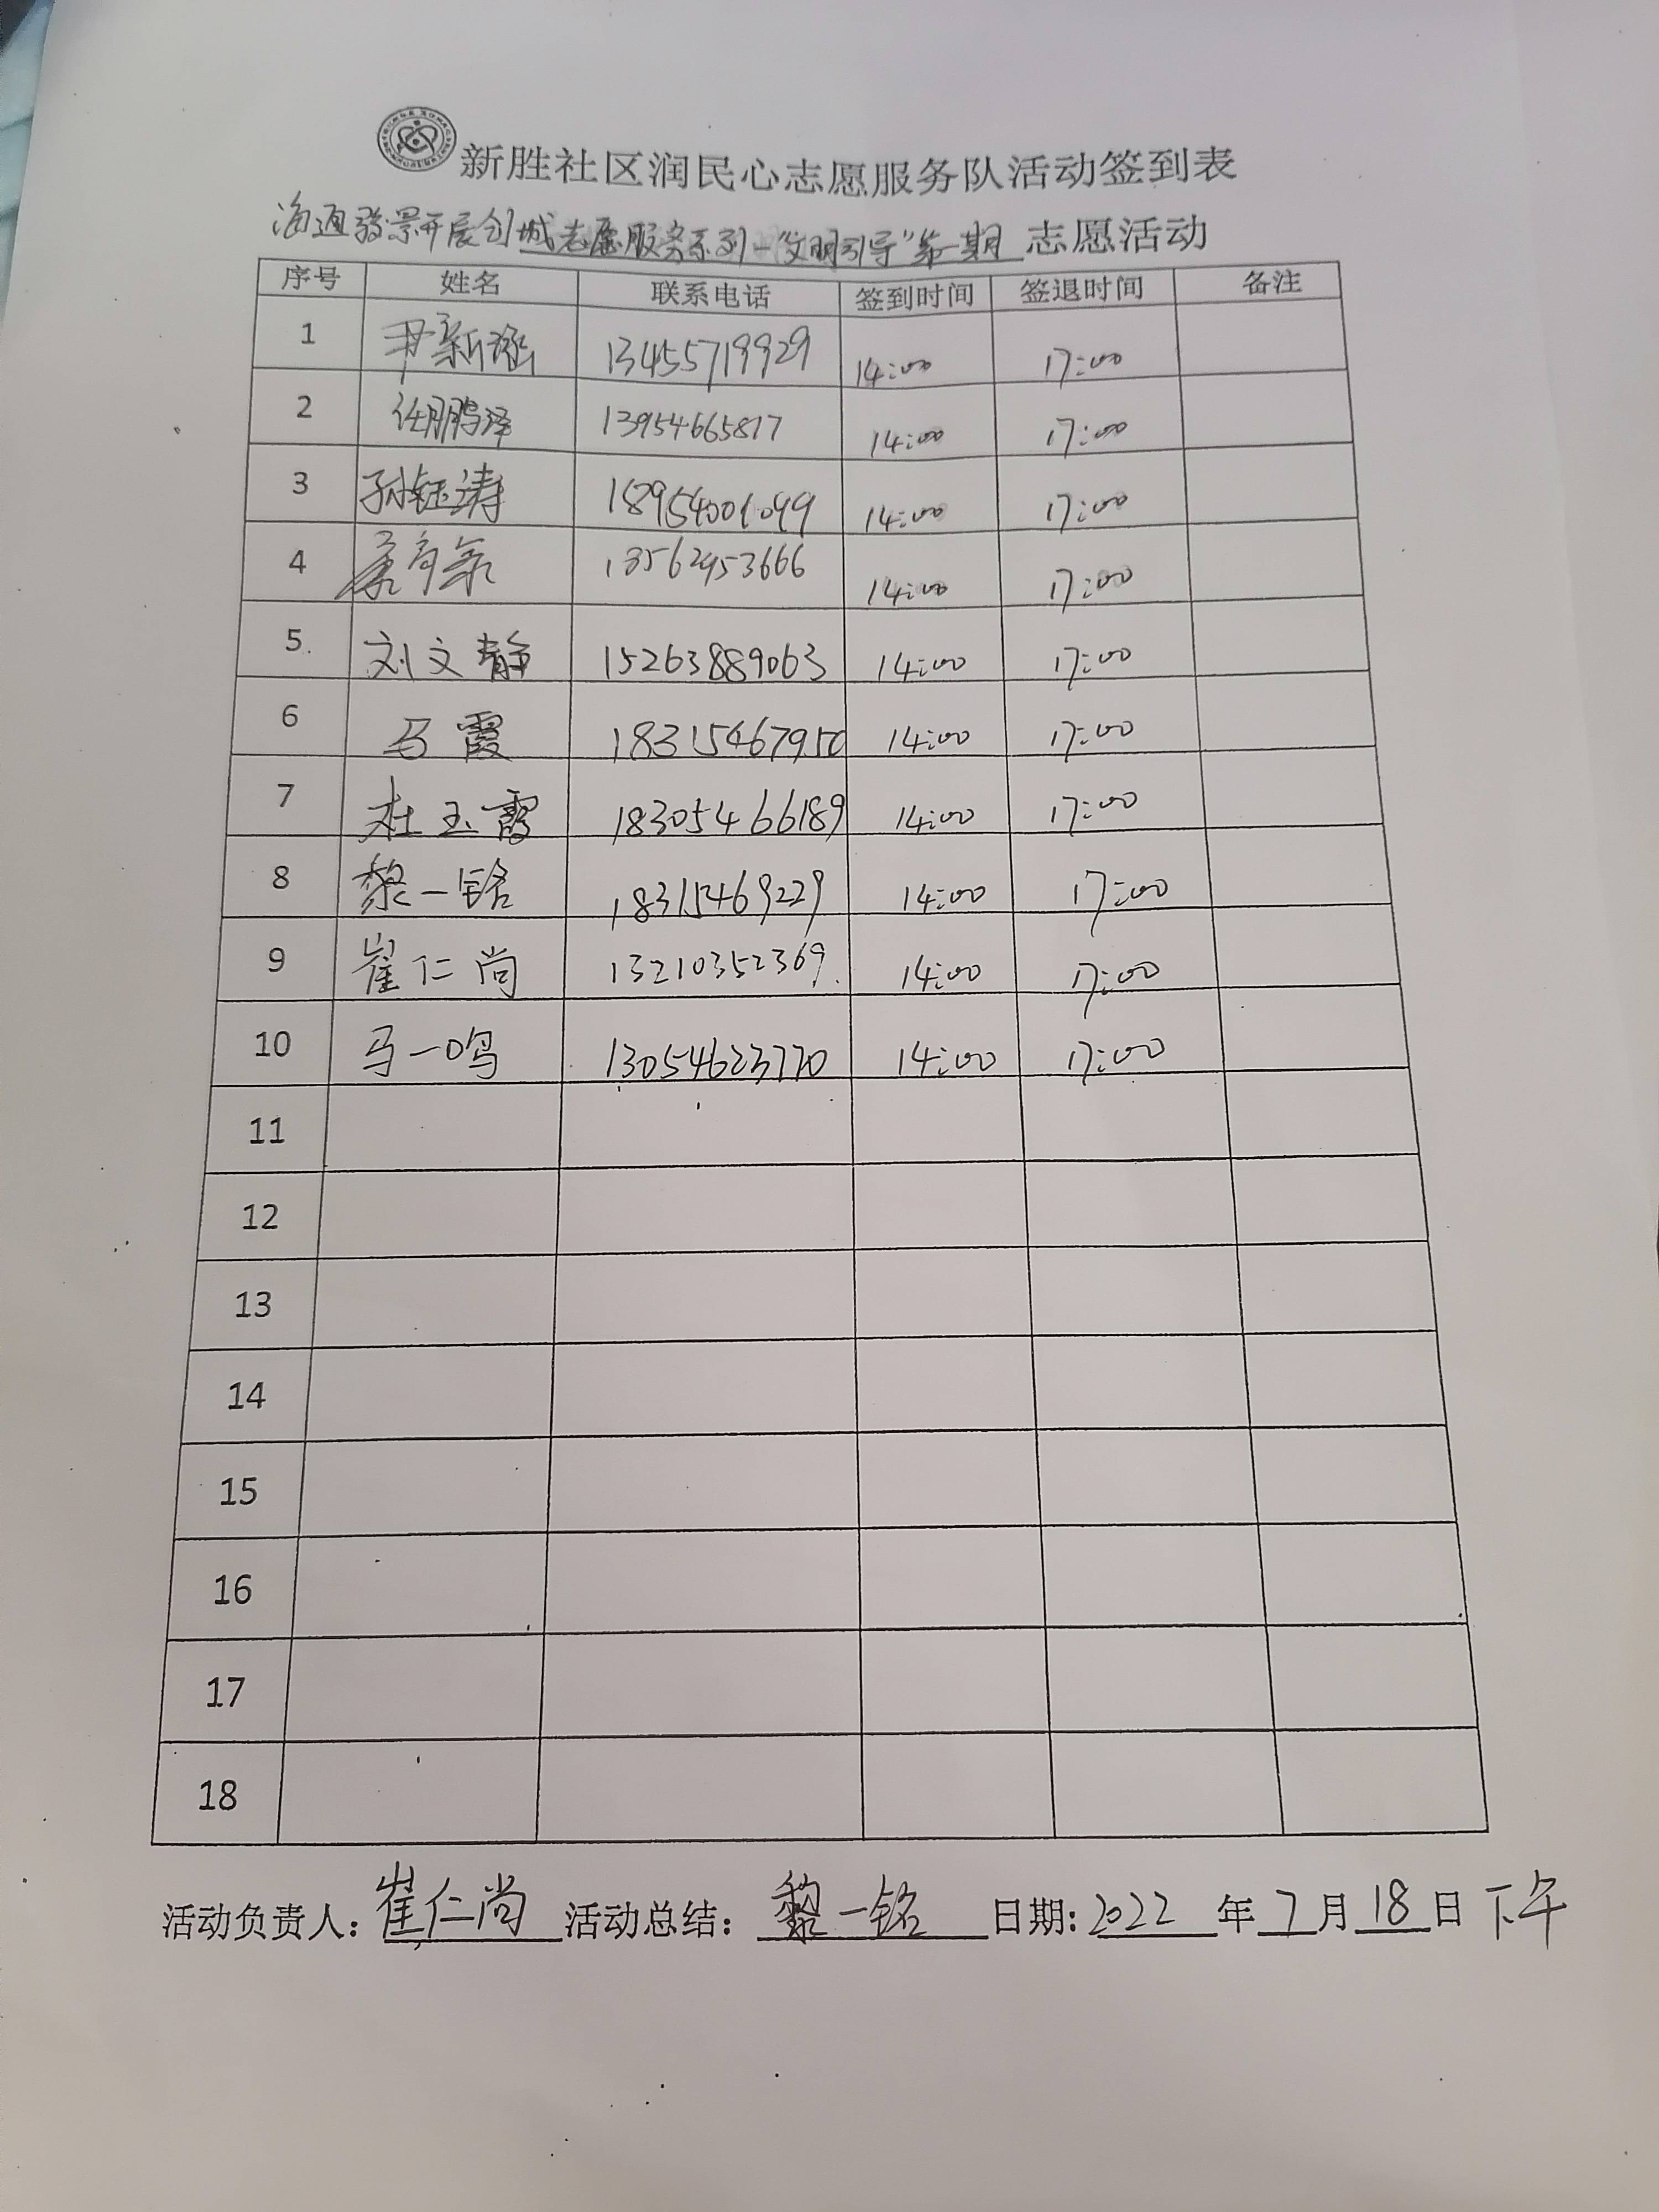 新胜社区润民心志愿服务队活动签到表
海通骏景开展创城志愿服务系列-"文明引导"第一期 志愿活动
序号 姓名 联系电话 签到时间 签退时间 备注
1 尹新涵 13455719929 14:00 17:00
2 任鹏泽 13954665817 14:00 17:00
3 孙钰涛 14:00 17:00
4 13562953666 14:00 17:00
5 刘文静 15263889063 14:00 17:00
6 马霞 18315467950 14:00 17:00
7 杜玉霞 18305466189 14:00 17:00
8 黎一铭 18315469229 14:00 17:00
9 崔仁尚 13210352369 14:00 17:00
10 马一鸣 13054623770 14:00 17:00
11
12
13
14
15
16
17
18
活动负责人: 崔仁尚 活动总结: 黎一铭 日期: 2022 年 7 月 18 日 下午